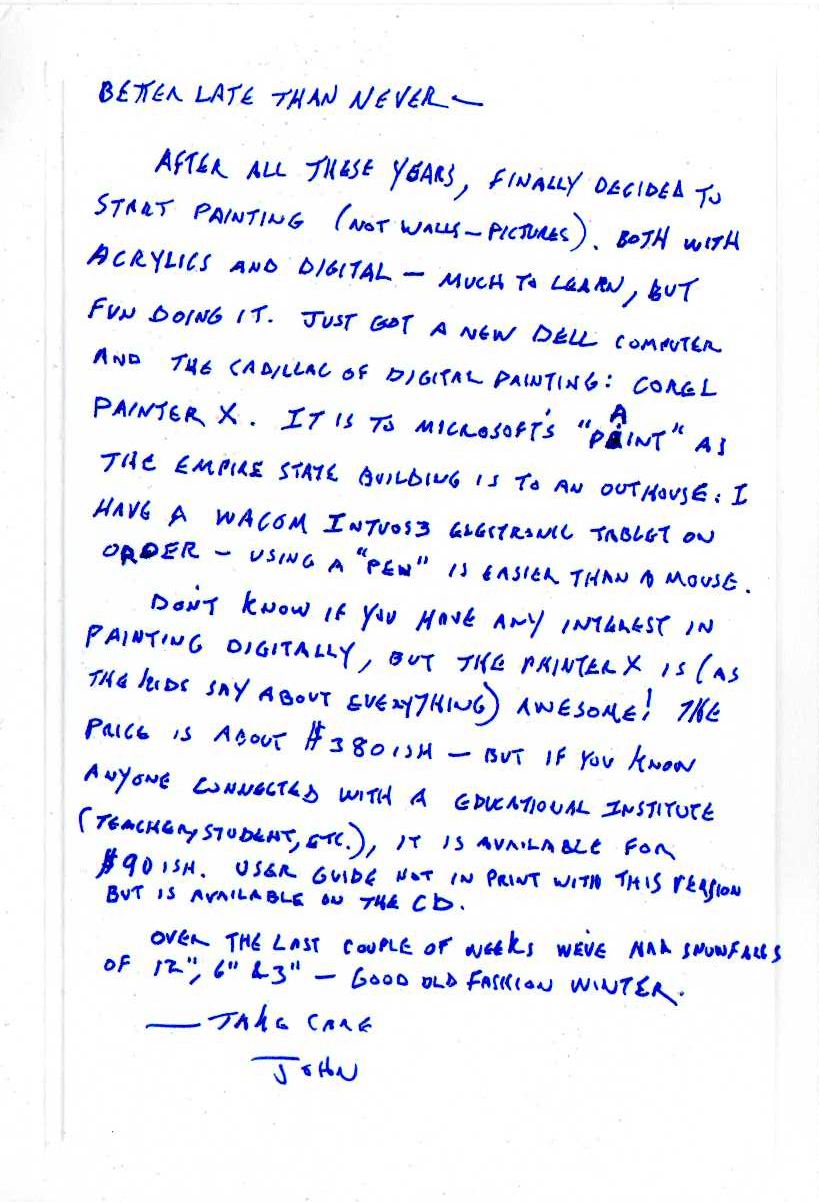 BETTER LATE THAN NEVER —
AFTER ALL THESE YEARS, FINALLY DECIDED TO
START PAINTING (NOT WALLS – PICTURES). BOTH WITH
ACRYLICS AND DIGITAL – MUCH TO LEARN, BUT
FUN DOING IT. JUST GOT A NEW DELL COMPUTER
AND THE CADILLAC OF DIGITAL PAINTING: COREL
PAINTER X. IT IS TO MICROSOFT'S "PAINT" AS
THE EMPIRE STATE BUILDING IS TO AN OUTHOUSE. I
HAVE A WACOM INTUOS3 ELECTRONIC TABLET ON
ORDER – USING A "PEN" IS EASIER THAN A MOUSE.
DON'T KNOW IF YOU HAVE ANY INTEREST IN
PAINTING DIGITALLY, BUT THE PAINTER X IS (AS
THE KIDS SAY ABOUT EVERYTHING) AWESOME! THE
PRICE IS ABOUT $380ISH – BUT IF YOU KNOW
ANYONE CONNECTED WITH A EDUCATIONAL INSTITUTE
(TEACHER, STUDENT, ETC.), IT IS AVAILABLE FOR
$90ISH. USER GUIDE NOT IN PRINT WITH THIS VERSION
BUT IS AVAILABLE ON THE CD.
OVER THE LAST COUPLE OF WEEKS WEVE HAD SNOWFALLS
OF 12", 6" & 3" – GOOD OLD FASHION WINTER.
— TAKE CARE
JOHN